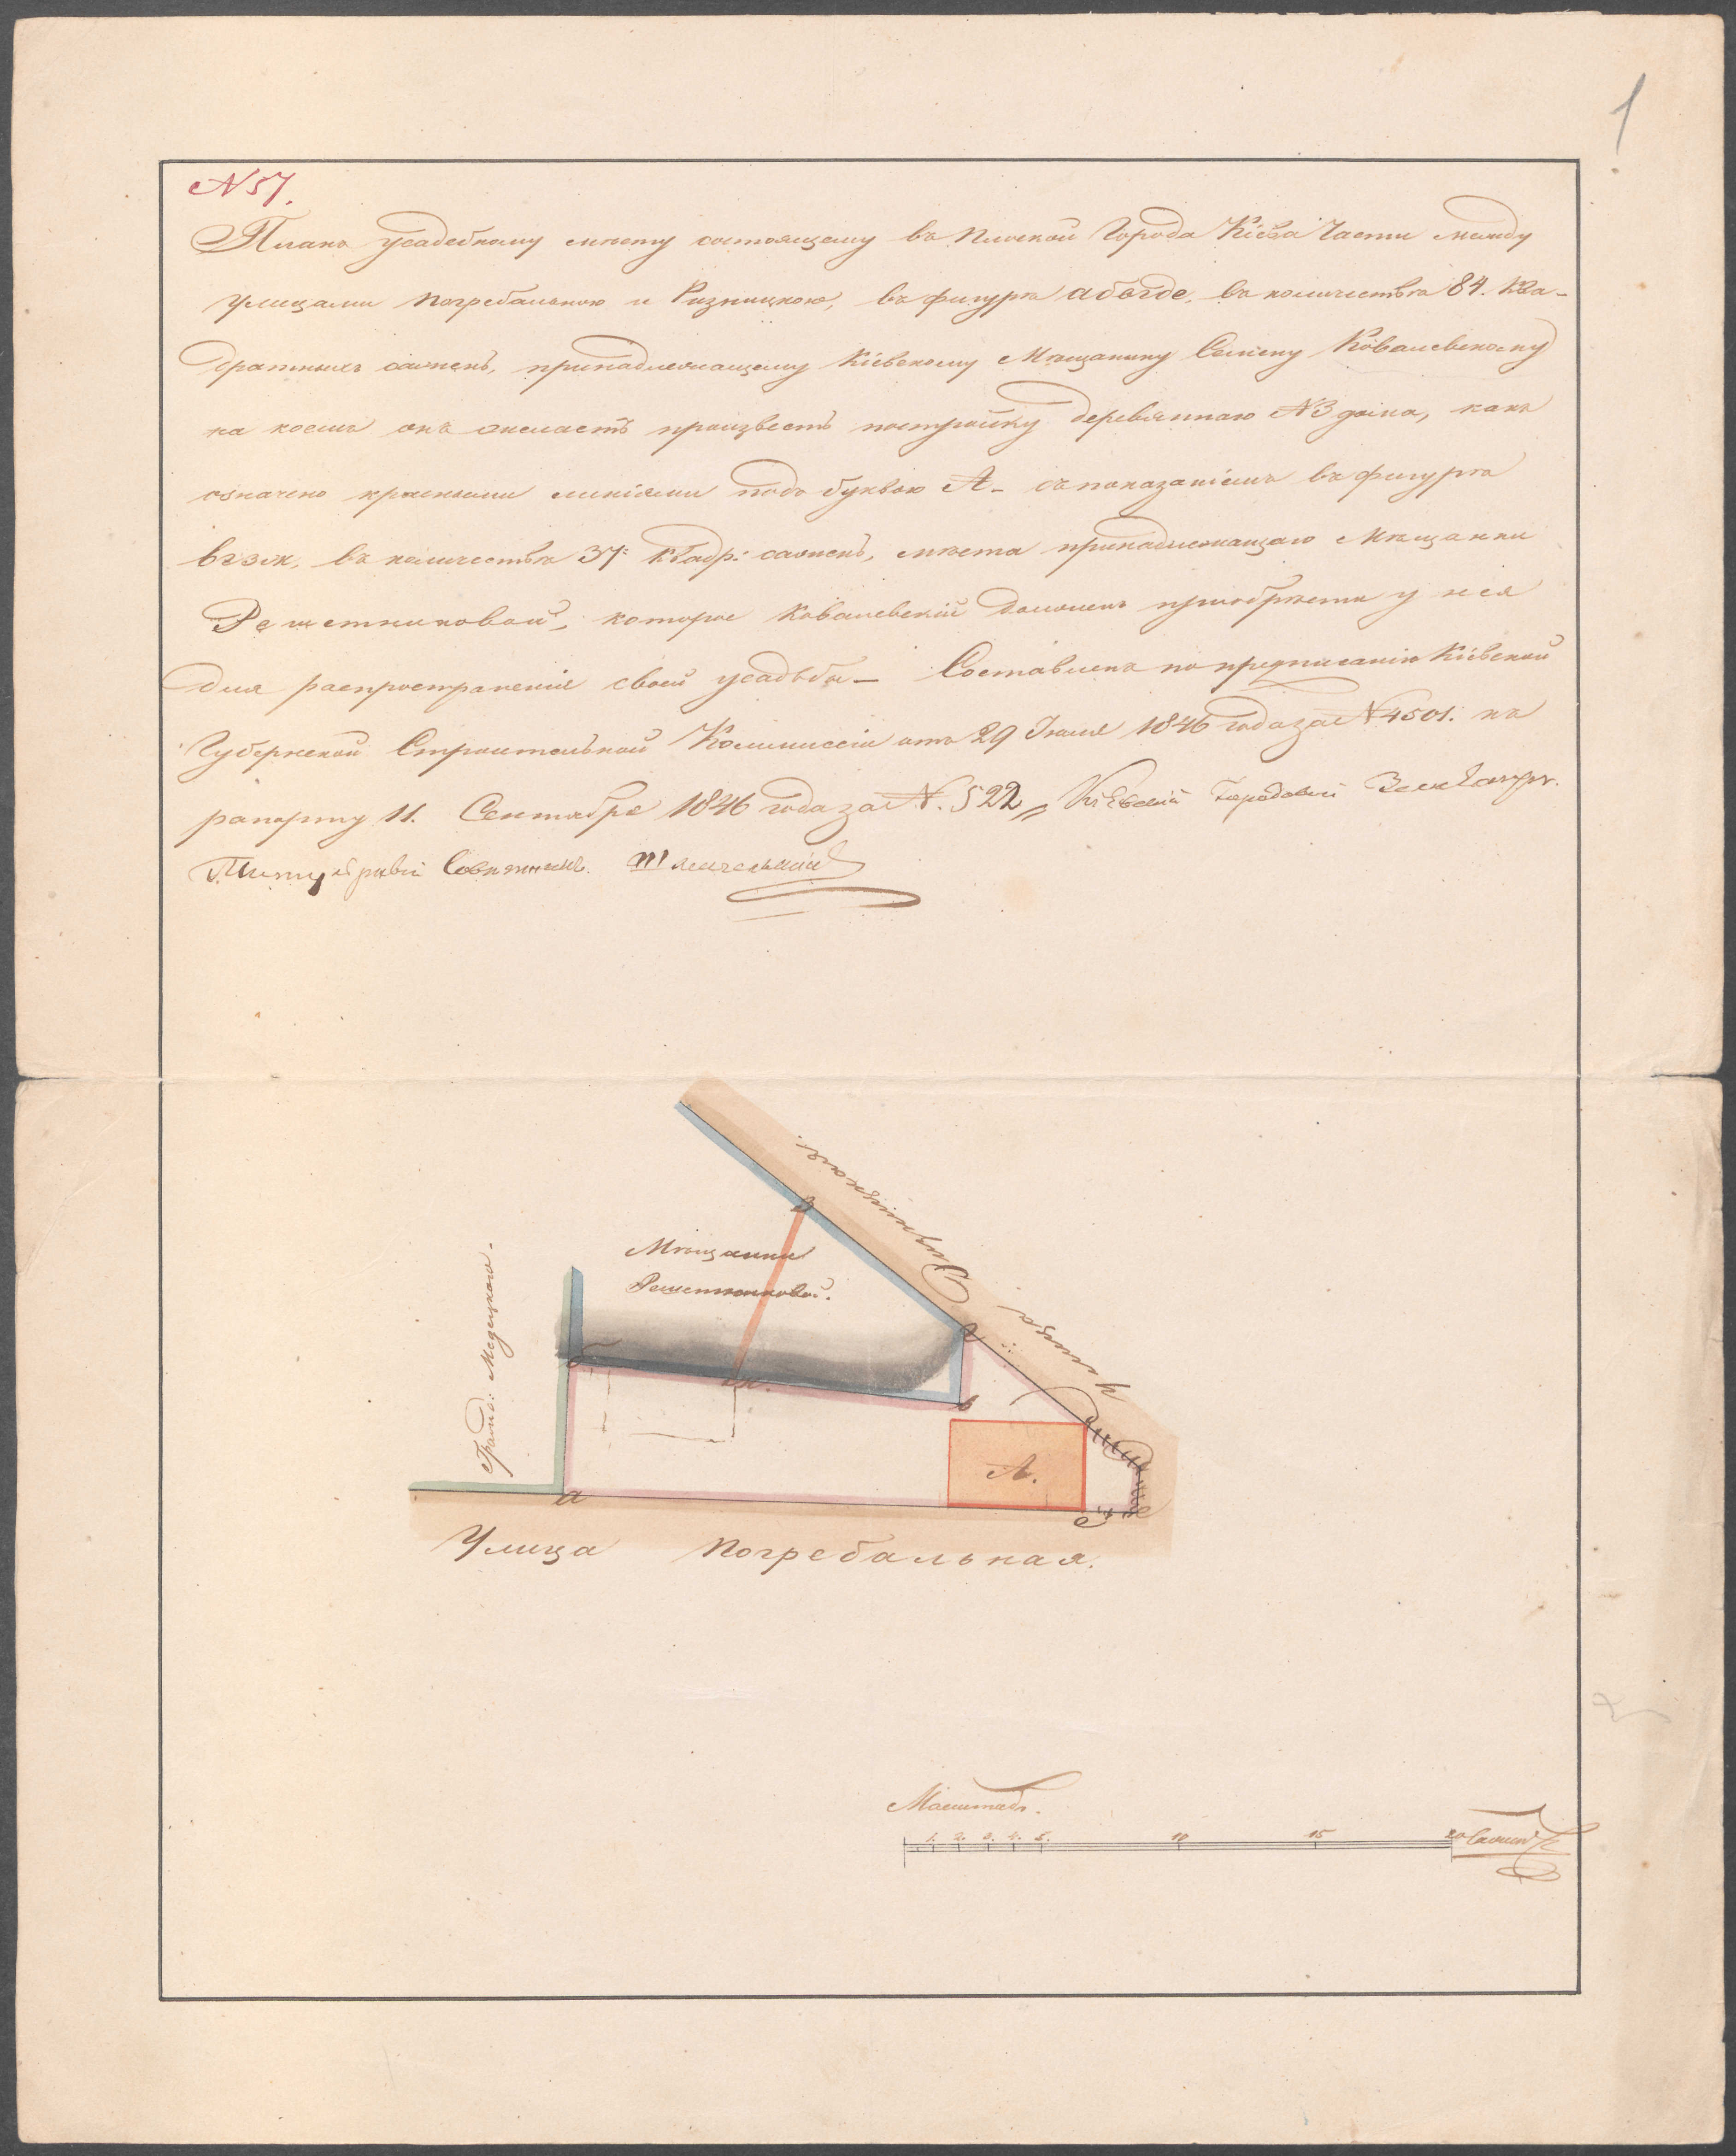 1
N 57.
Планъ усадебному мѣсту состоящему въ Плоской Города Кіева Части между
улицами Погребальною и Ризницкою, въ фигурѣ абвгде, въ количествѣ 84. Ква-
дратныхъ сажень, принадлежащему Кіевскому Мѣщанину Семену Ковалевскому
на коемъ онъ желаетъ произвесть постройку деревяннаго N3 дома, какъ
означено красными линіями подъ буквою А- съ показаніемъ въ фигурѣ
вгзж, въ количествѣ 37: квадр: сажень, мѣста принадлежащаго Мѣщанки
Решетниковой, которое Ковалевскій долженъ приобрѣсти у нея
для распространенія своей усадьбы- Составленъ по предписанію Кіевской
Губернской Строительной Коммиссіи отъ 29 Іюля 1846 года за N 4501. къ
рапорту 11. Сентября 1846 года за N. 522 Кіевскій Городовый Землемѣръ
Титулярный Совѣтникъ.
Улица Ризницкая.
з
Мѣщанки
Решетниковой.
Градс: Медецкаго.
г
б
ж.
в
А.
а
е
Улица Погребальная.
Масштабъ.
1. 2. 3. 4. 5. 10 15 20 Сажен